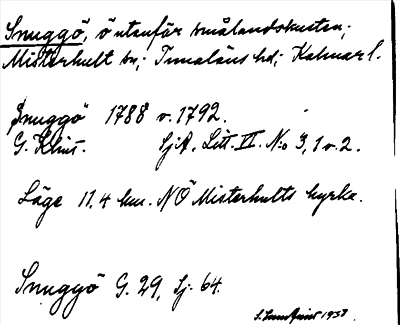 Snuggö, ö utanför smålandskusten;
Misterhult sn; Tunaläns hd; Kalmar l.
Snuggö 1788 o. 1792.
G. Klint. SjA, Litt. II. No 3, 1 o. 2.
Läge 11,4 km. NÖ Misterhults kyrka.
Snuggö G. 29, Sj. 64.